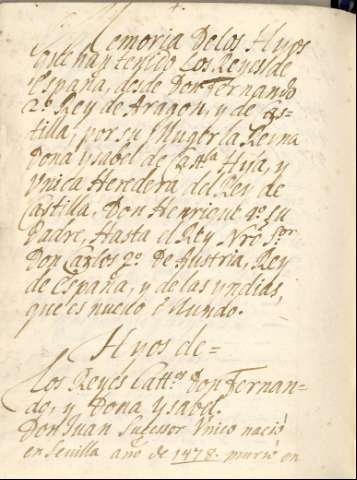 Memoria De los Hyos
que han tenido Los Reyes de
España, desde Don Fernando
2º. Rey de Aragon, y de Cas=
tilla, por su Muger la Reyna
Dona ysabel de Castla Hija, y
Vnica Heredera del Rey de
Castilla, Don Henrique 4º. su
Padre, Hasta el Rey Nro Sor
Don Carlos 2º. De Austria, Rey
de España, y de las yndias,
que es nuevo Mundo.
Hyos de=
Los Reyes Cattos Don Fernan=
do, y Dona Ysabel.
Don Juan Sucesor Vnico nació
en Sevilla año de 1478. murió en